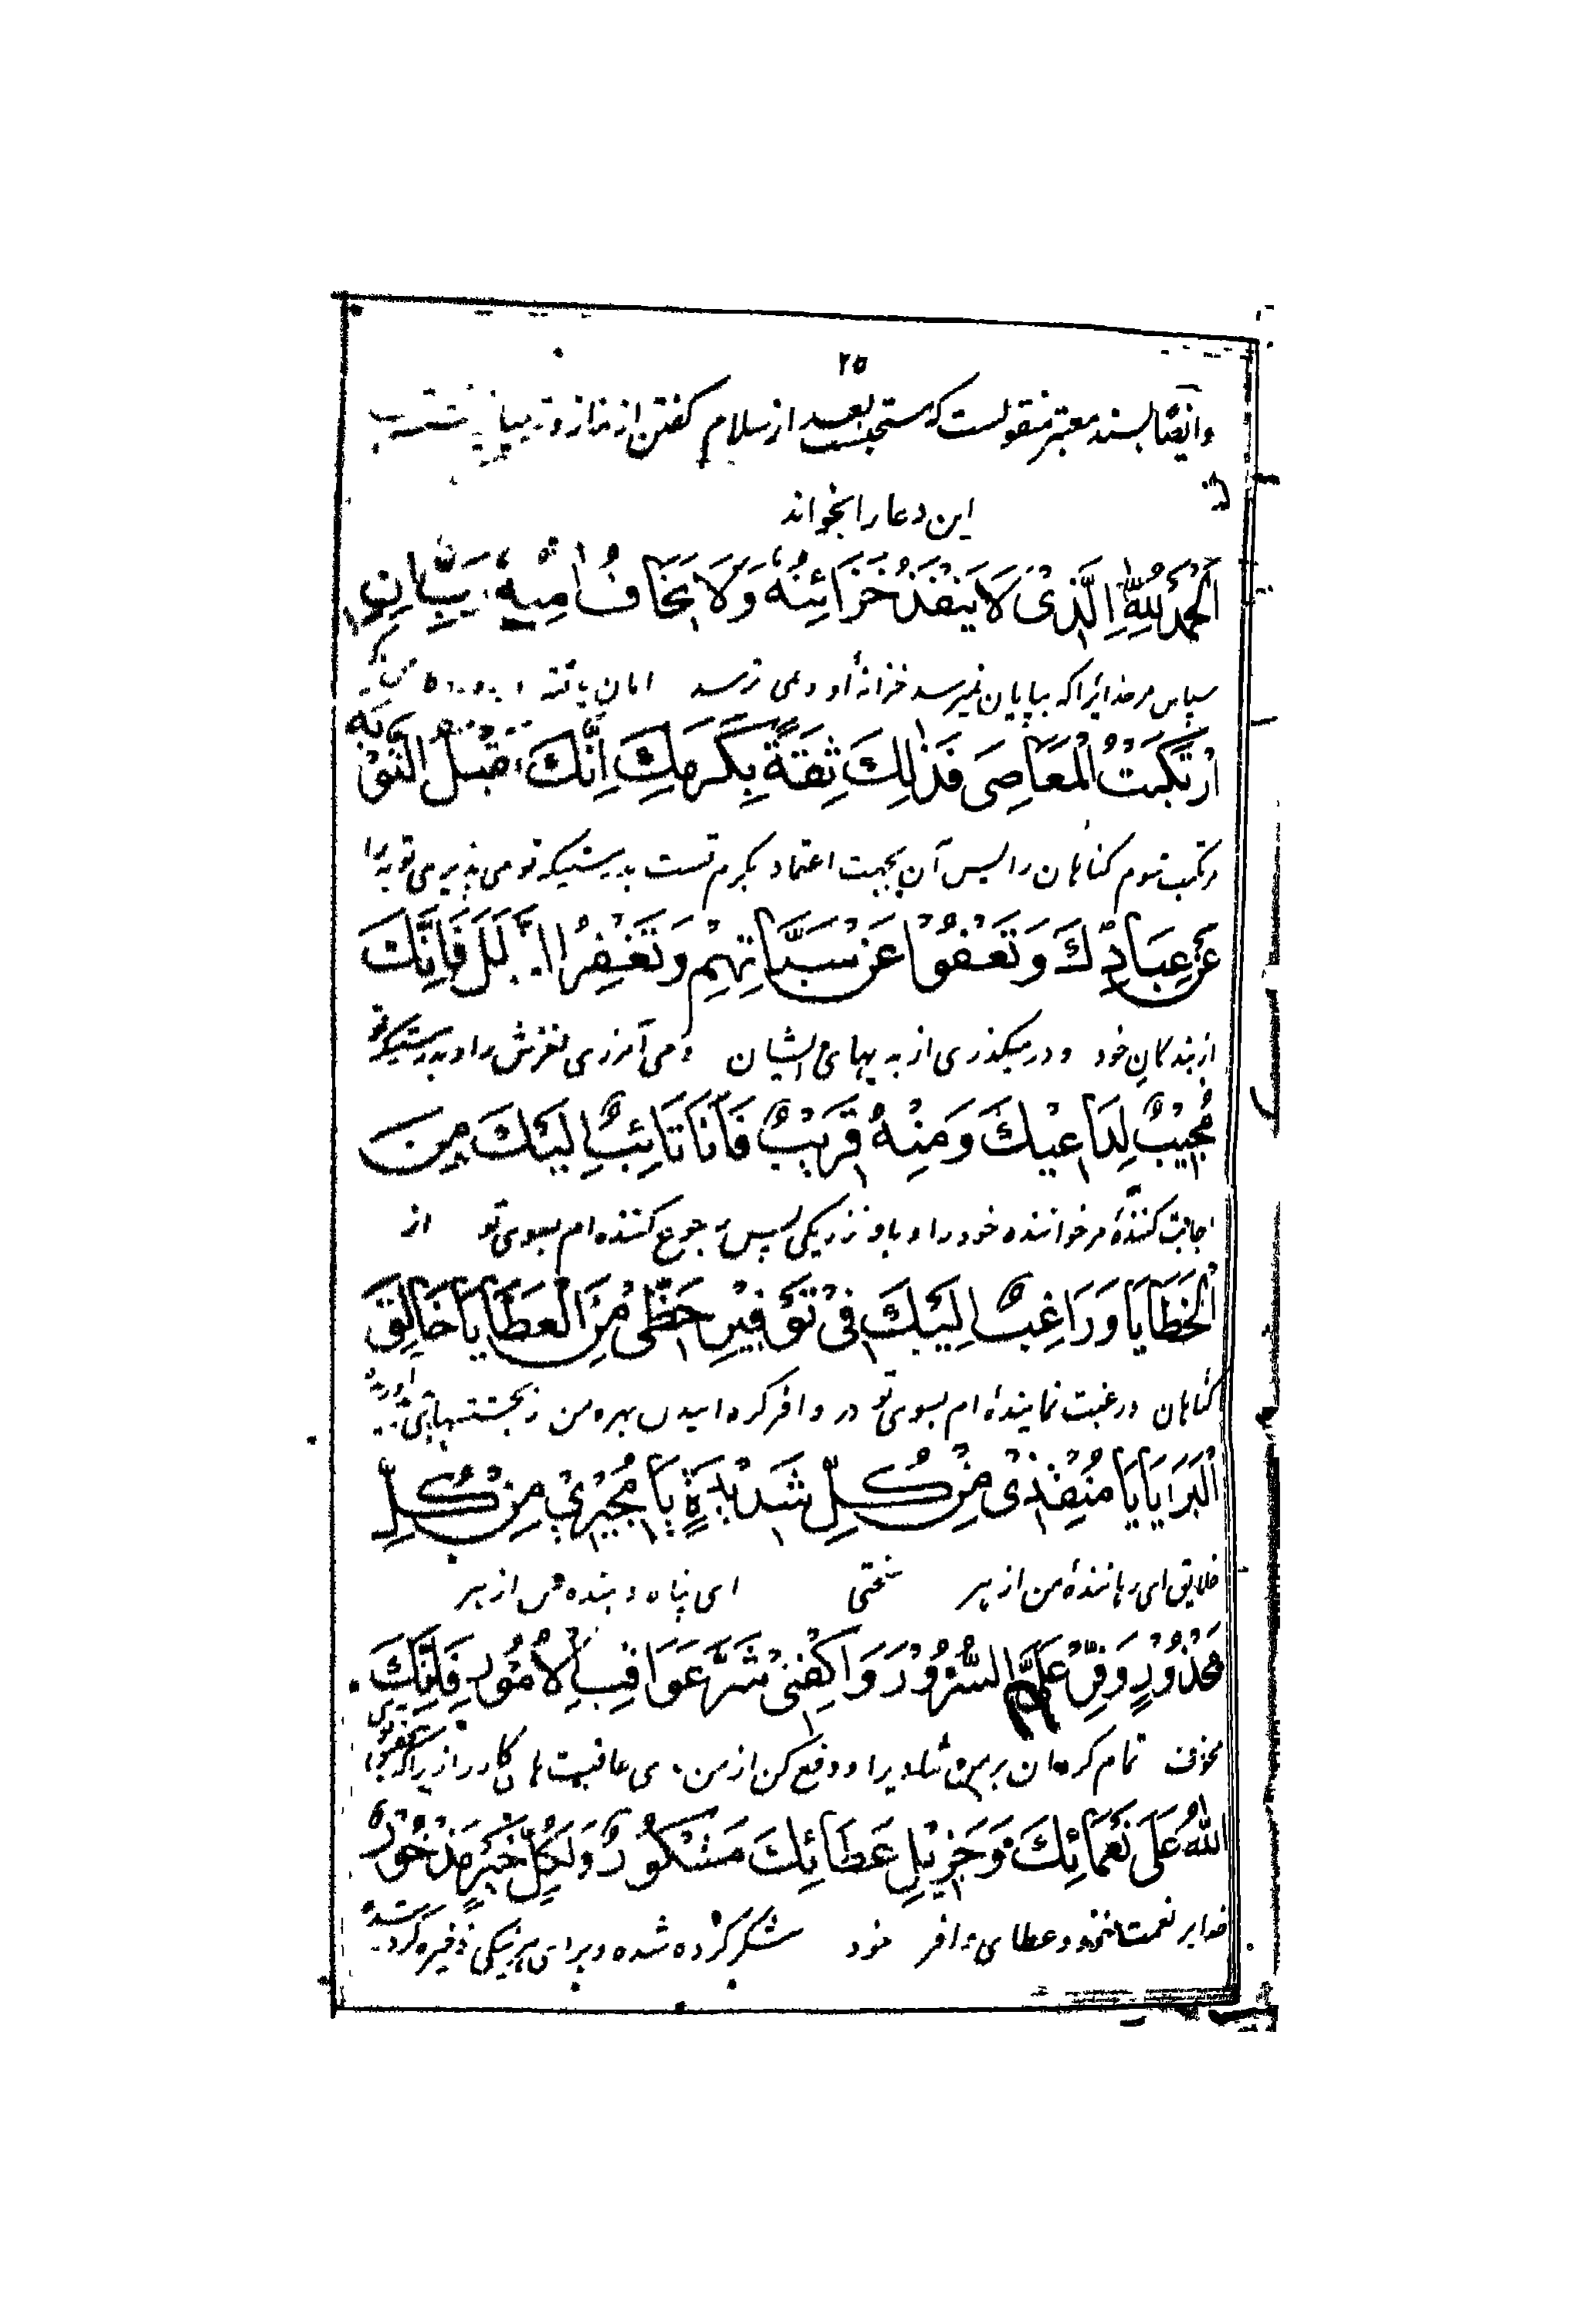 ۲۵
وایضاً بسند معتبر منقولست که مستحبست بعد از سلام گفتن از نماز وتر
این دعا را بخواند
اَلْحَمْدُ لِلّٰهِ الَّذِیْ لَا یَنْفَذُ خَزَائِنُهُ وَلَا یَخَافُ اٰمِنُهُ رَبِّ اِنِ
سپاس مر خدایرا که بپایان نمیرسد خزانهٔ او و نمی ترسد امان یافته
ارْتَكَبْتُ الْمَعَاصِیَ فَذٰلِكَ ثِقَةٌ بِكَرَمِكَ اِنَّكَ تَقْبَلُ التَّوْبَةَ
مرتکب شوم گناهان را پس آن بجهت اعتماد بکرم تست بدرستیکه تو می پذیری توبه را
عَنْ عِبَادِكَ وَتَعْفُوْا عَنْ سَیِّاٰتِهِمْ وَتَغْفِرُ الزَّلَلَ فَاِنَّكَ
از بندگان خود و در میگذری از بدیهای ایشان و می آمرزی لغزش را و بدرستیکه تو
مُجِیْبٌ لِدَاعِیْكَ وَمِنْهُ قَرِیْبٌ فَاَنَا تَائِبٌ اِلَیْكَ مِنَ
اجابت کنندهٔ مر خواننده خود را و باو نزدیکی پس رجوع کننده ام بسوی تو از
الْخَطَایَا وَرَاغِبٌ اِلَیْكَ فِیْ تَوْفِیْرِ حَظِّیْ مِنَ الْعَطَایَا یَا خَالِقَ
گناهان و رغبت نمایندهٔ ام بسوی تو در وافر گردانیدن بهره من از بخششهای
الْبَرَایَا یَا مُنْقِذِیْ مِنْ كُلِّ شَدِیْدَةٍ یَا مُجِیْرِیْ مِنْ كُلِّ
خلایق ای رهانندهٔ من از هر سختی ای پناه دهنده من از هر
مَحْذُوْرٍ وَفِّرْ عَلَیَّ السُّرُوْرَ وَاكْفِنِیْ شَرَّ عَوَاقِبِ الْاُمُوْرِ فَاِنَّكَ
مخوف تمام گردان بر من شادیرا و دفع کن از من بدی عاقبت های کار را زیراکه تو
اللّٰهُ عَلٰی نَعْمَائِكَ وَجَزِیْلِ عَطَائِكَ مَشْكُوْرٌ وَلِكُلِّ خَیْرٍ مَذْخُوْرٌ
خدا بر نعمت خود و عطای وافر خود شکر کرده شده و برای هر نیکی ذخیره کرده شدهٔ